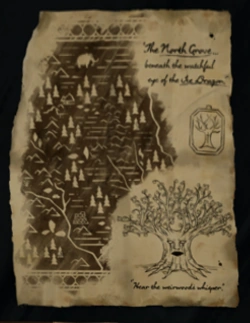 "The North Grove
beneath the watchful
eye of the Ice Dragon"
"Hear the weirwoods whisper."